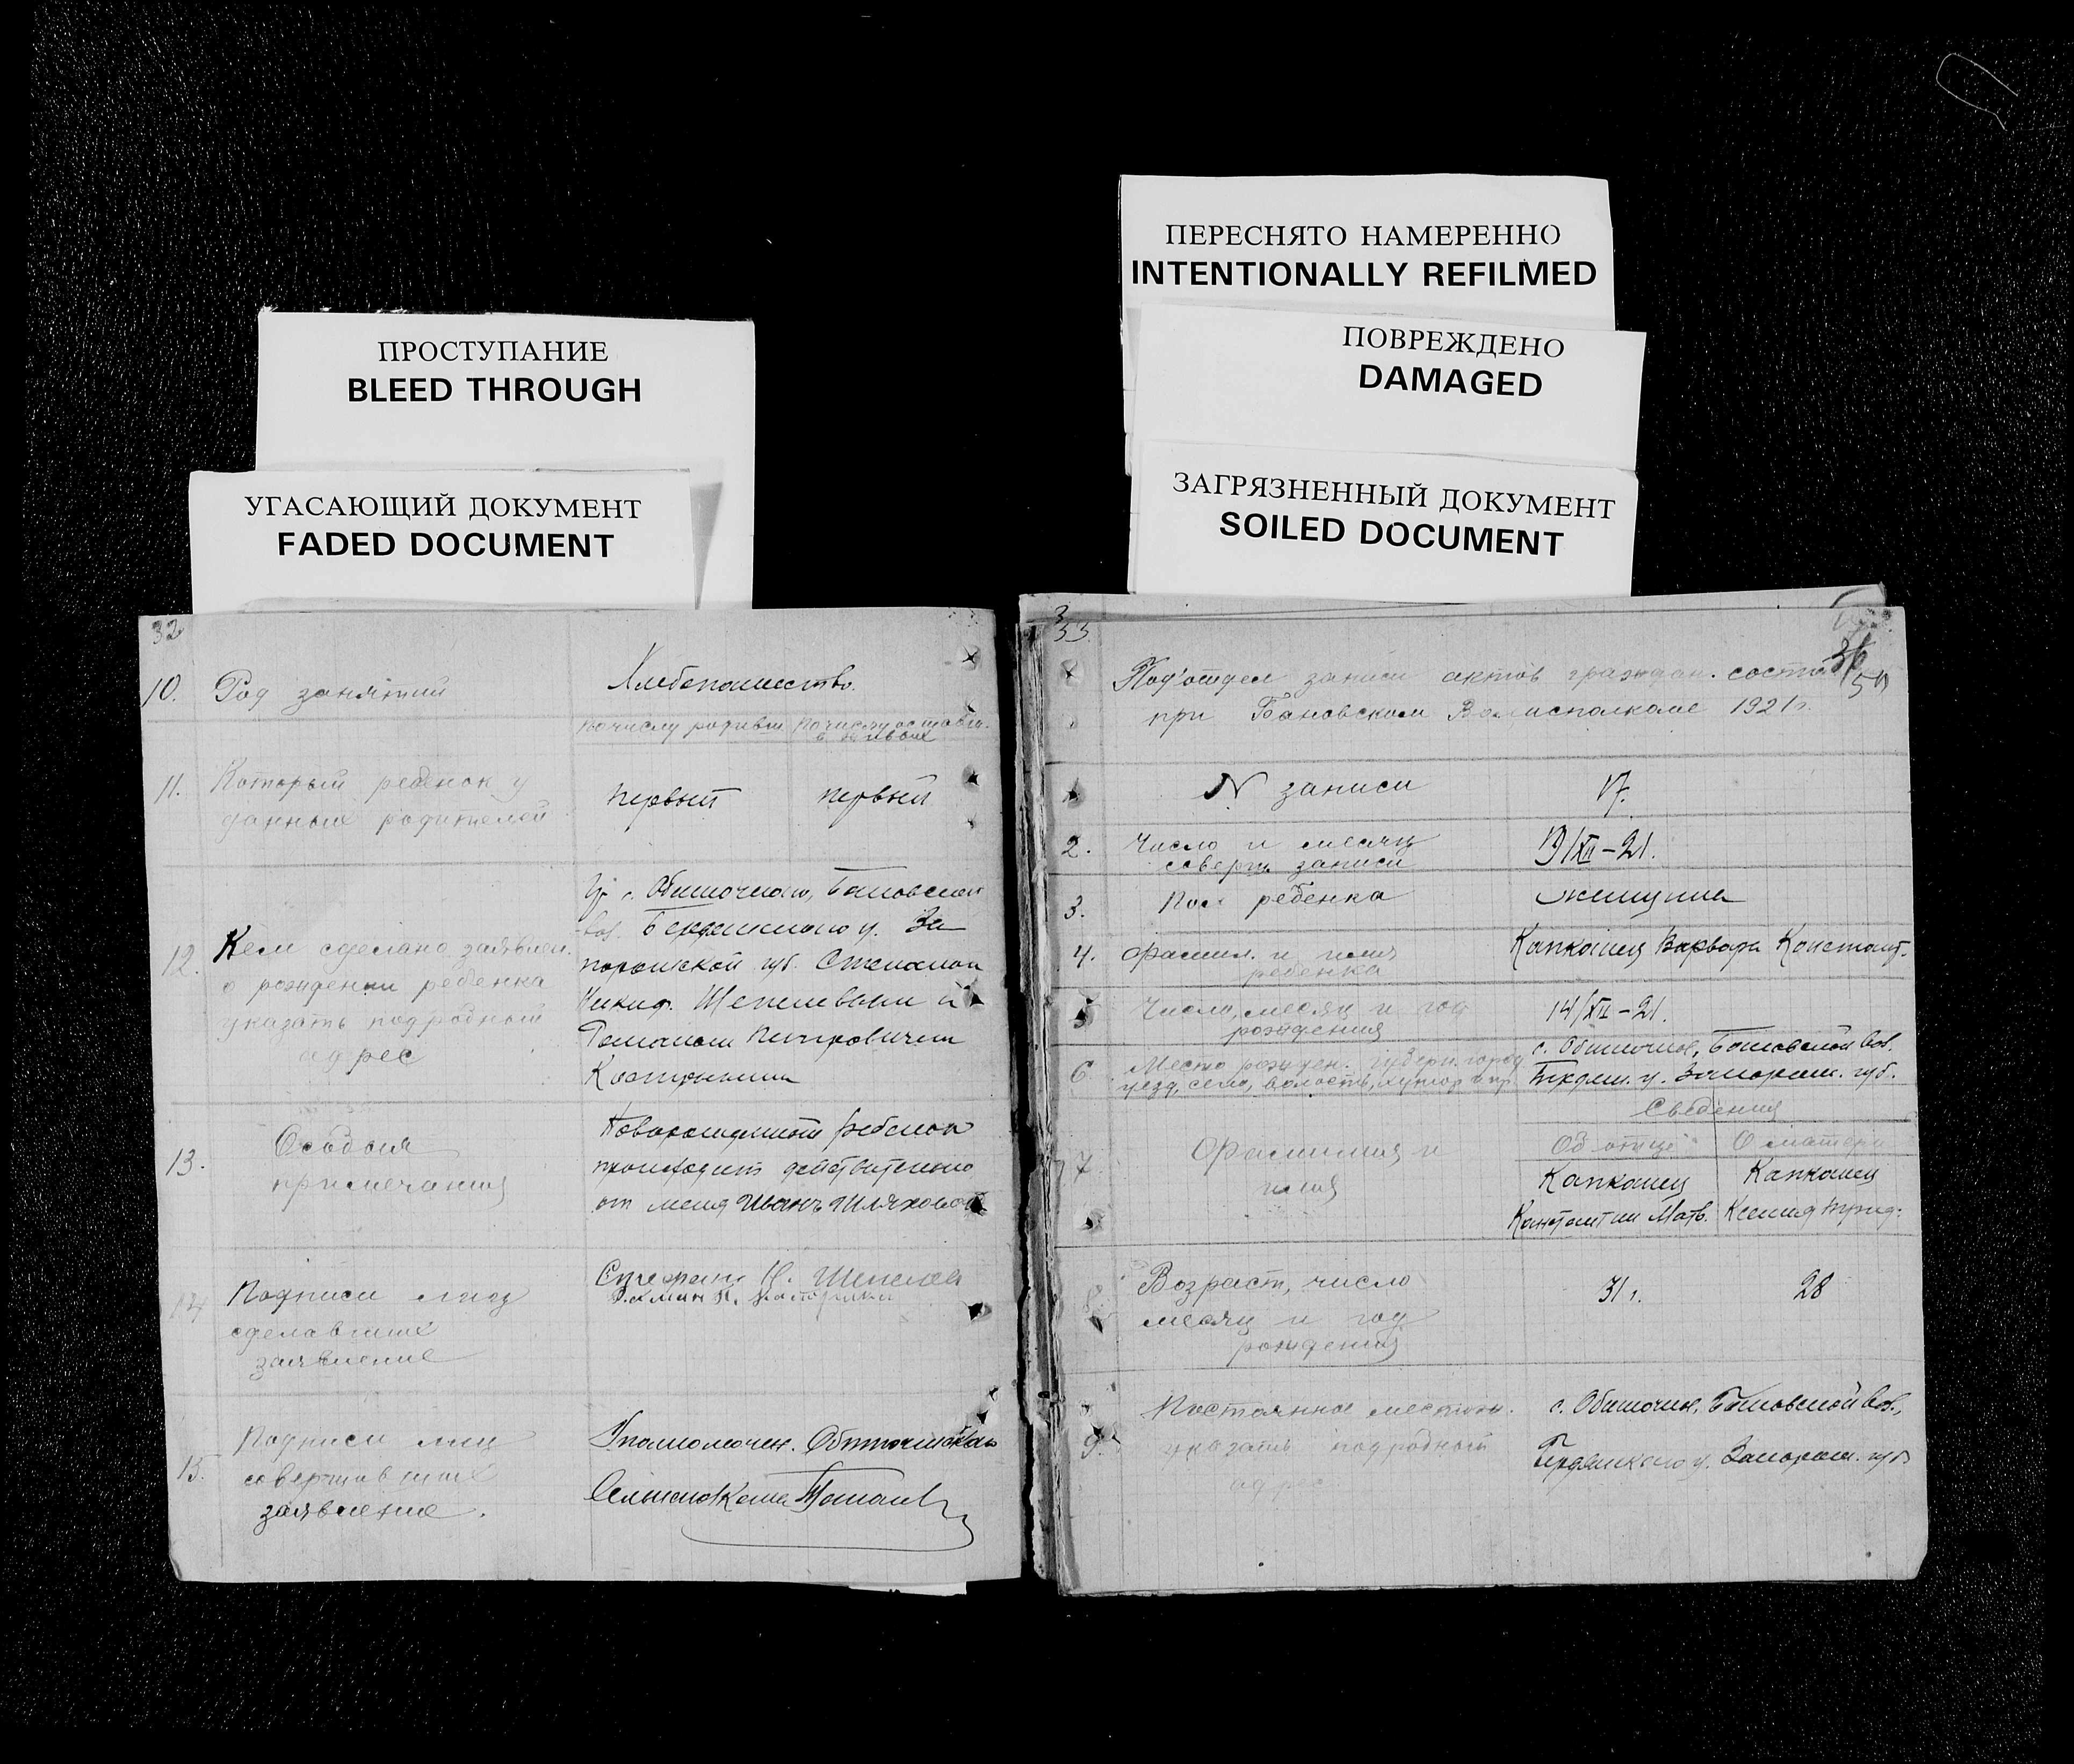 ПРОСТУПАНИЕ
BLEED THROUGH
УГАСАЮЩИЙ ДОКУМЕНТ
FADED DOCUMENT
ПЕРЕСНЯТО НАМЕРЕННО
INTENTIONALLY REFILMED
ПОВРЕЖДЕНО
DAMAGED
ЗАГРЯЗНЕННЫЙ ДОКУМЕНТ
SOILED DOCUMENT
32
10. Род занятий
Хлебопашество.
11. Который ребенок у
данных родителей
первый первый
12. Кем сделано заявлен.
о рождении ребенка
указать подродный
адрес
Гр. с. Обиточного, Бановской
вол. Бердянского у. За
порожской губ. Степаном
Никиф. Щепилевым и
Романом Петровичем
13. Особыя
примечания
Новорожденный ребенок
происходит действительно
от меня Иванъ
14 Подписи лиц
сделавших
заявление
15. Подписи лиц
совершивших
заявление.
Уполномочен.
33.
Под'отдел записи актов граждан.
при Бановском Волисполкоме 1921 г.
N записи 17.
2. Число и месяц
соверш. записи
19/XII-21.
3. Пол ребенка женщина
4. Фамил. и имя
ребенка
Капканец Варвара Констант.
5 Число, месяц и год
рождения
14/XII-21.
6 Место рожден. губерн. город
уезд, село, волость, хутор и пр.
с. Обиточное, Бановской вол.
Бердян. у. Запорож. губ.
Сведения
7 Фамилия и
имя
Об отце О матери
Капканец Капканец
Константин Матв. Ксения
8 Возраст, число
месяц и год
рождения
31 г. 28
9. Постоянное
указать подродный
с. Обиточн. Бановской вол.,
Бердянского у. Запорож. губ